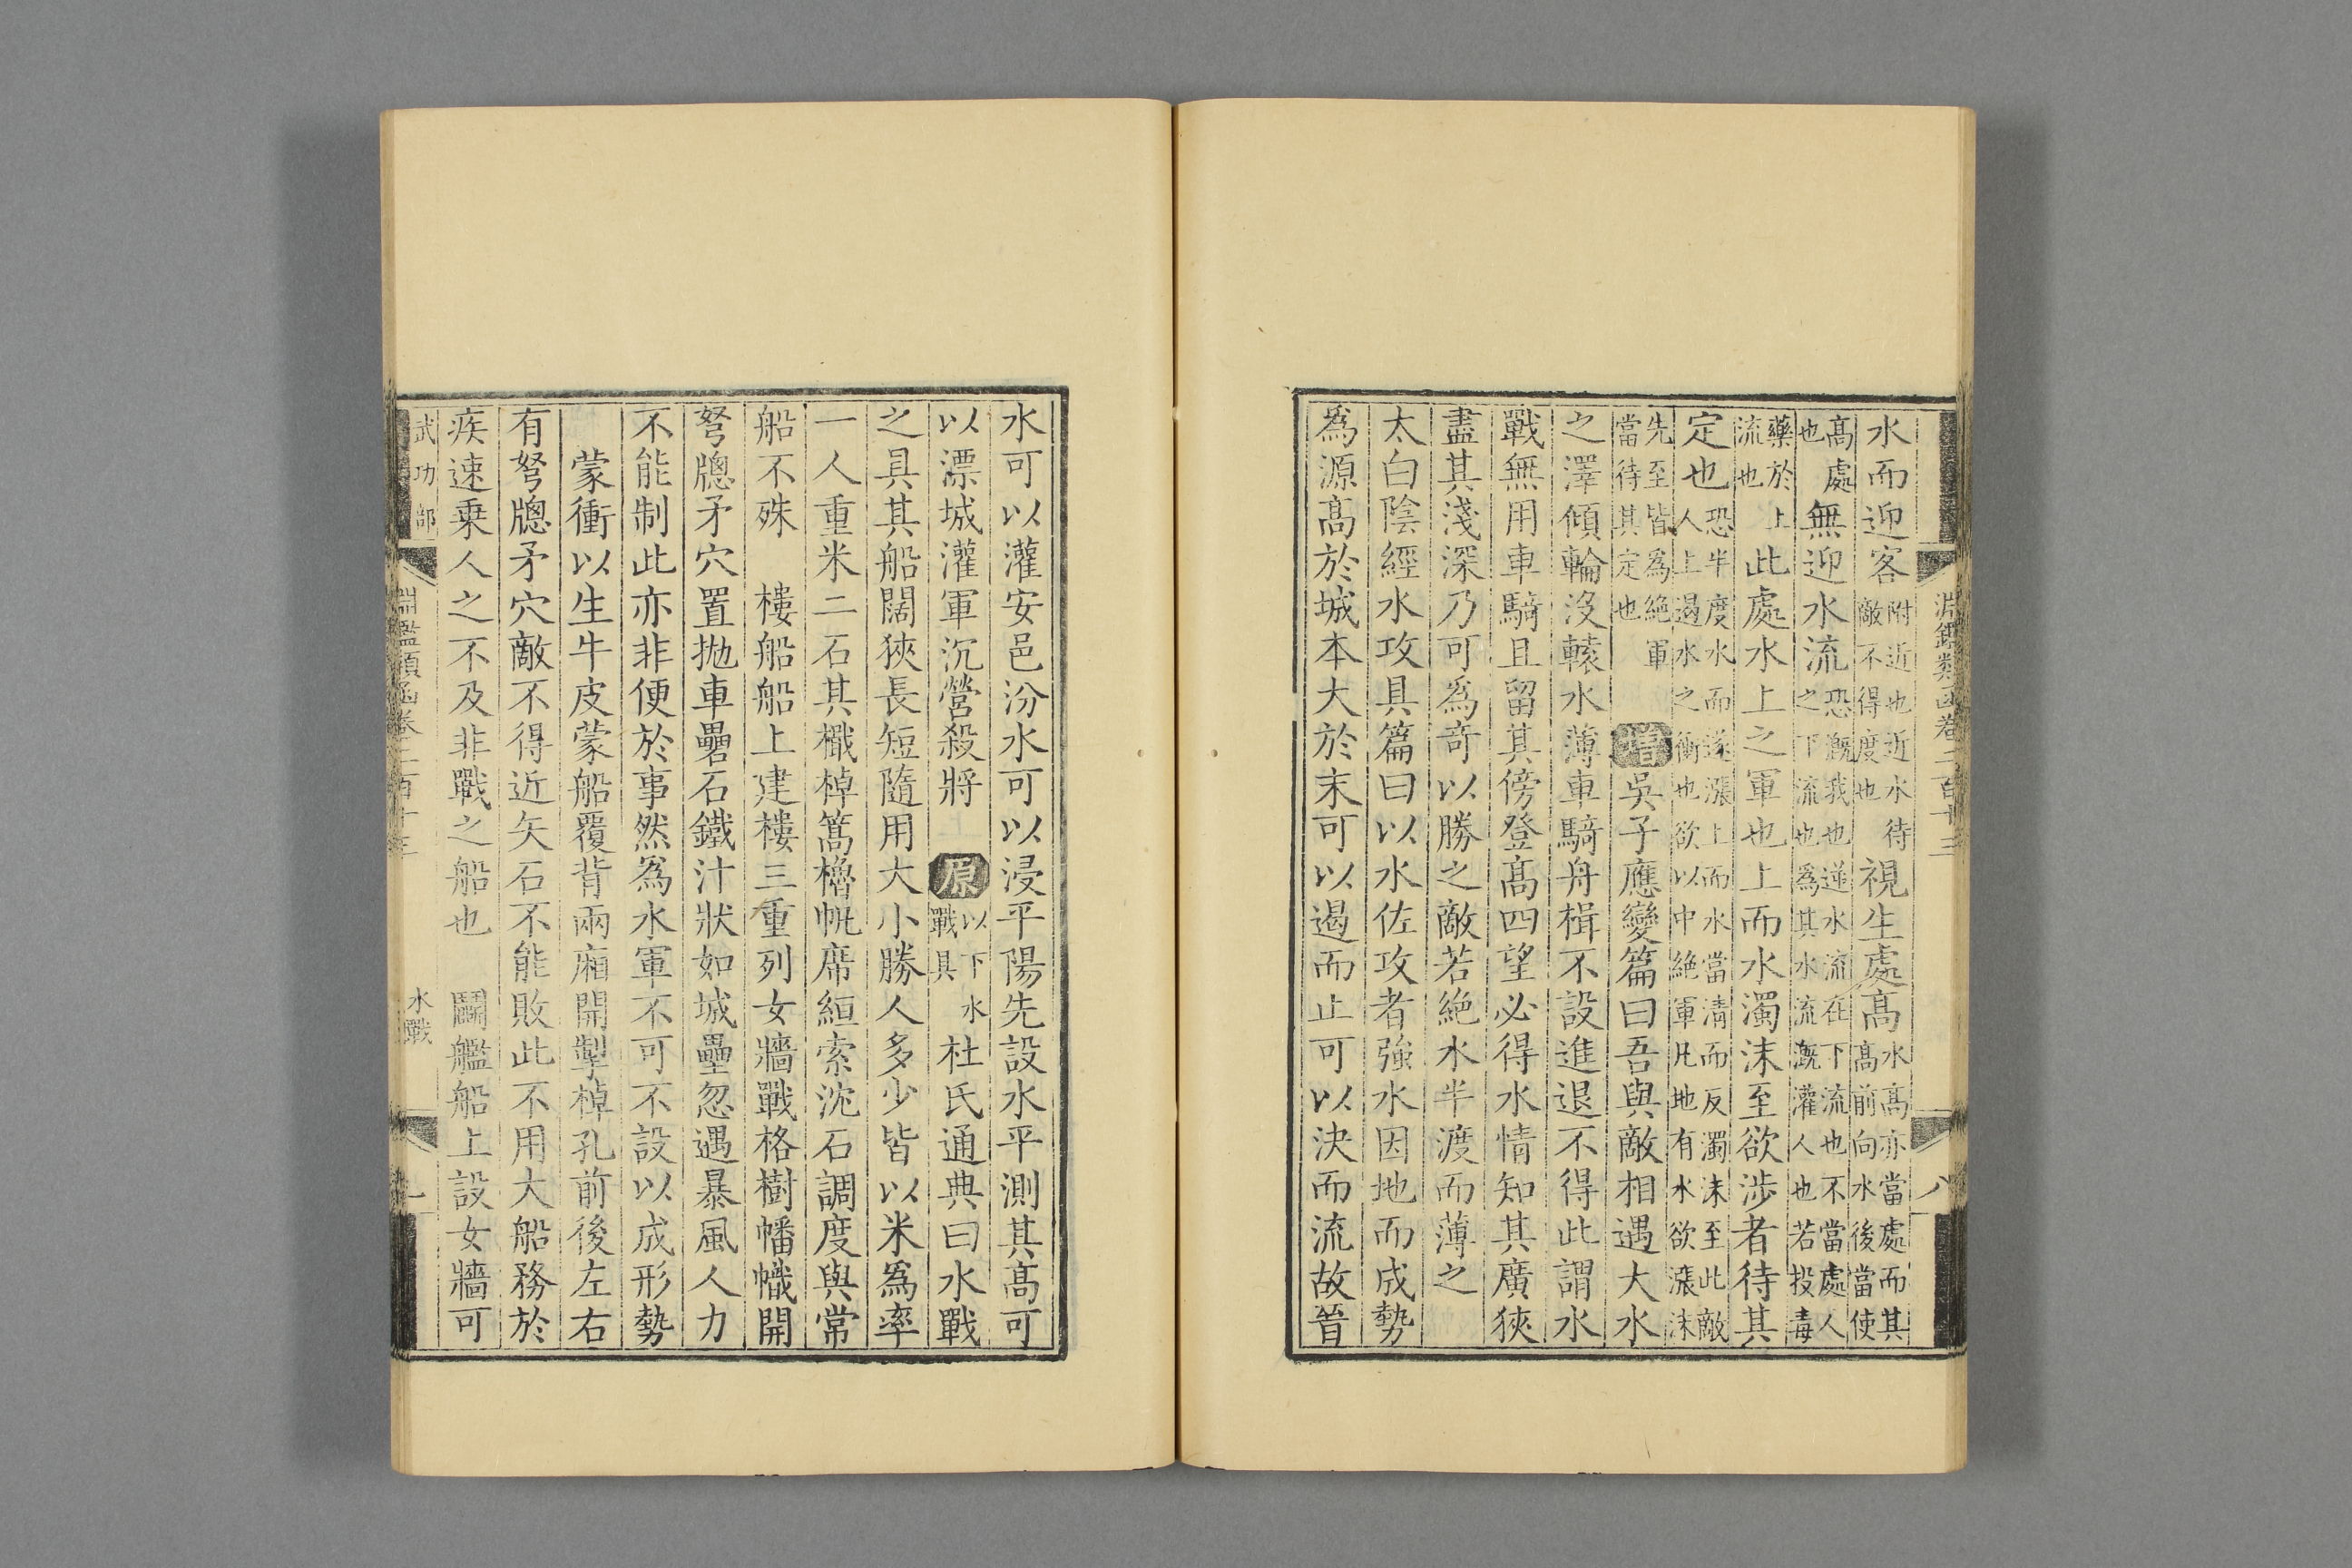 水而迎客附近也近水待敵不得度也視生處高水高亦當處而其高前向水後當使
高處也無迎水流恐溉我也逆水流在下流也不當處人之下流也爲其水流溉灌人也若投毒
藥於上流也此處水上之軍也上而水濁沫至欲涉者待其
定也恐半度水而遂漲上而水當清而反濁沫至此敵人上遏水之衝也欲以中絶軍凡地有水欲漲沫
先至皆爲絶軍當待其定也增吳子應變篇曰吾與敵相遇大水
之澤傾輪沒轅水薄車騎舟楫不設進退不得此謂水
戰無用車騎且留其傍登高四望必得水情知其廣狹
盡其淺深乃可爲奇以勝之敵若絶水半渡而薄之
太白陰經水攻具篇曰以水佐攻者強水因地而成勢
爲源高於城本大於末可以遏而止可以決而流故晉
水可以灌安邑汾水可以浸平陽先設水平測其高可
以漂城灌軍沉營殺將原以下水戰具杜氏通典曰水戰
之具其船闊狹長短隨用大小勝人多少皆以米爲率
一人重米二石其檝棹篙櫓帆席絙索沈石調度與常
船不殊 樓船船上建樓三重列女牆戰格樹幡幟開
弩牕矛穴置拋車礨石鐵汁狀如城壘忽遇暴風人力
不能制此亦非便於事然爲水軍不可不設以成形勢
蒙衝以生牛皮蒙船覆背兩廂開掣棹孔前後左右
有弩牕矛穴敵不得近矢石不能敗此不用大船務於
疾速乗人之不及非戰之船也 鬬艦船上設女牆可
武功部
淵鑑類函卷二百十三
水戰